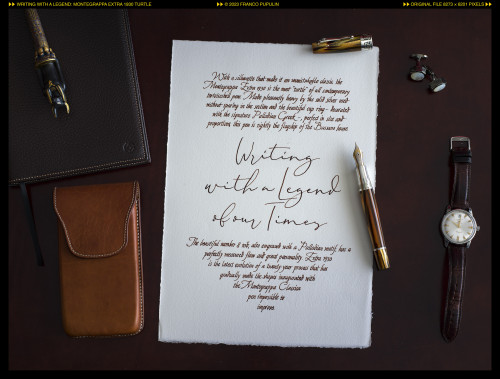 WRITING WITH A LEGEND: MONTEGRAPPA EXTRA 1930 TURTLE
© 2023 FRANCO PUPULIN
ORIGINAL FILE 8273 × 6201 PIXELS
With a silhouette that make it an unmistakable classic, the
Montegrappa Extra 1930 is the most "turtle" of all contemporary
tortoiseshell pens. Made pleasantly heavy by the solid silver used
without sparing in the section and the beautiful cap ring – decorated
with the signature Palladian Greek –, perfect in size and
proportions, this pen is rightly the flagship of the Bassano house
Writing
with a Legend
of our Times
The beautiful number 8 nib, also engraved with a Palladian motif, has a
perfectly measured flow and great personality. Extra 1930
is the latest evolution of a twenty-year process that has
gradually made the shapes inaugurated with
the Montegrappa Classica
pen impossible to
improve